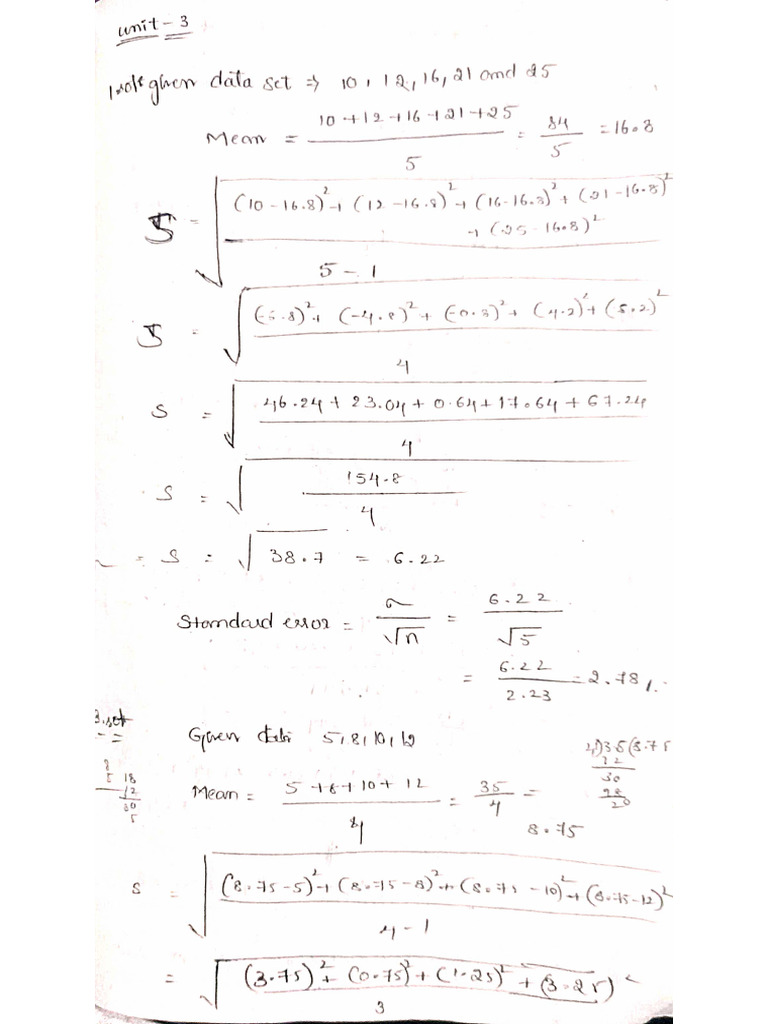 unit - 3
given data set ⇒ 10, 12, 16, 21 and 25
Mean = (10+12+16+21+25)/5 = 84/5 = 16.8
S = √(((10-16.8)² + (12-16.8)² + (16-16.8)² + (21-16.8)² + (25-16.8)²)/(5-1))
S = √(((-6.8)² + (-4.8)² + (-0.8)² + (4.2)² + (8.2)²)/4)
S = √((46.24 + 23.04 + 0.64 + 17.64 + 67.24)/4)
S = √(154.8/4)
= S = √38.7 = 6.22
Standard error = σ/√n = 6.22/√5
= 6.22/2.23 = 2.78
3.set
Given data 5, 8, 10, 12
Mean = (5+8+10+12)/4 = 35/4 = 8.75
4)35(8.75
32
30
28
20
18
12
30
5
S = √(((8.75-5)² + (8.75-8)² + (8.75-10)² + (8.75-12)²)/(4-1))
= √(((3.75)² + (0.75)² + (1.25)² + (3.25)²)/3)